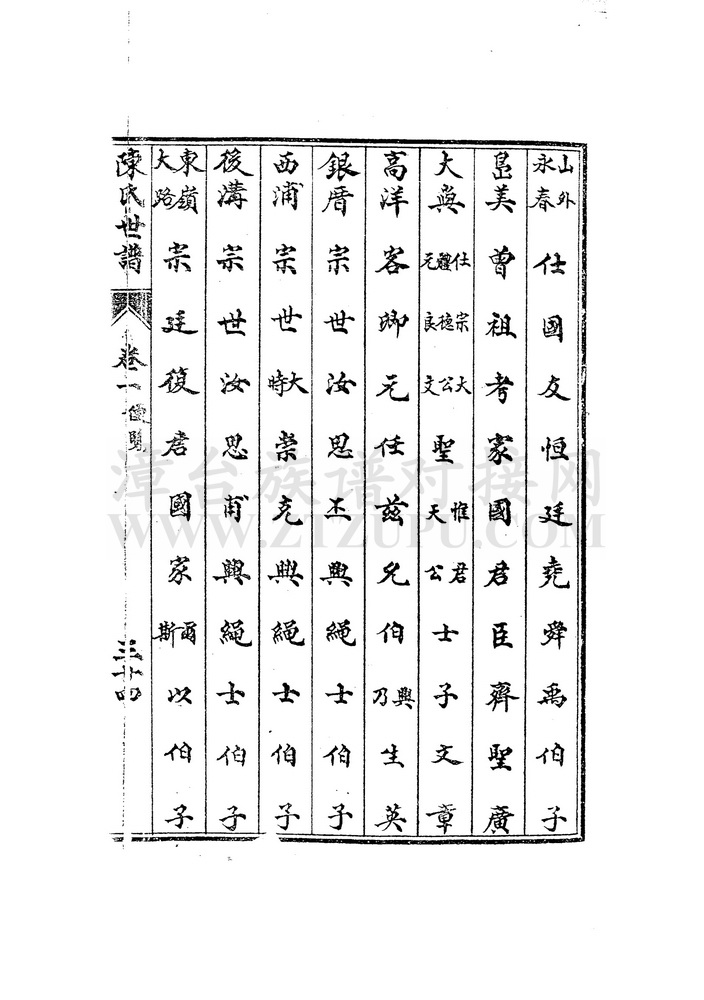 山外永春仕國友恒廷堯舜禹伯子
島美曾祖考家國君臣齊聖廣
大奐仕宗大體德公元良文聖惟君天公士子文章
高洋客卿元任茲允伯興乃生英
銀厝宗世汝思丕興繩士伯子
西浦宗世大時崇克興繩士伯子
後溝宗世汝思甫興繩士伯子
東嶺大路宗廷復君國家爾斯以伯子
陳氏世譜 卷一 便覽 三十四
漳台族谱对接网
WWW.ZTZUPU.COM